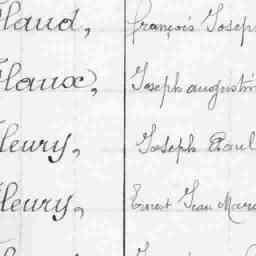 Flaud, François Joseph
Flaux, Joseph augustin
Fleury, Joseph Paul
Fleury, Ernest Jean Marie